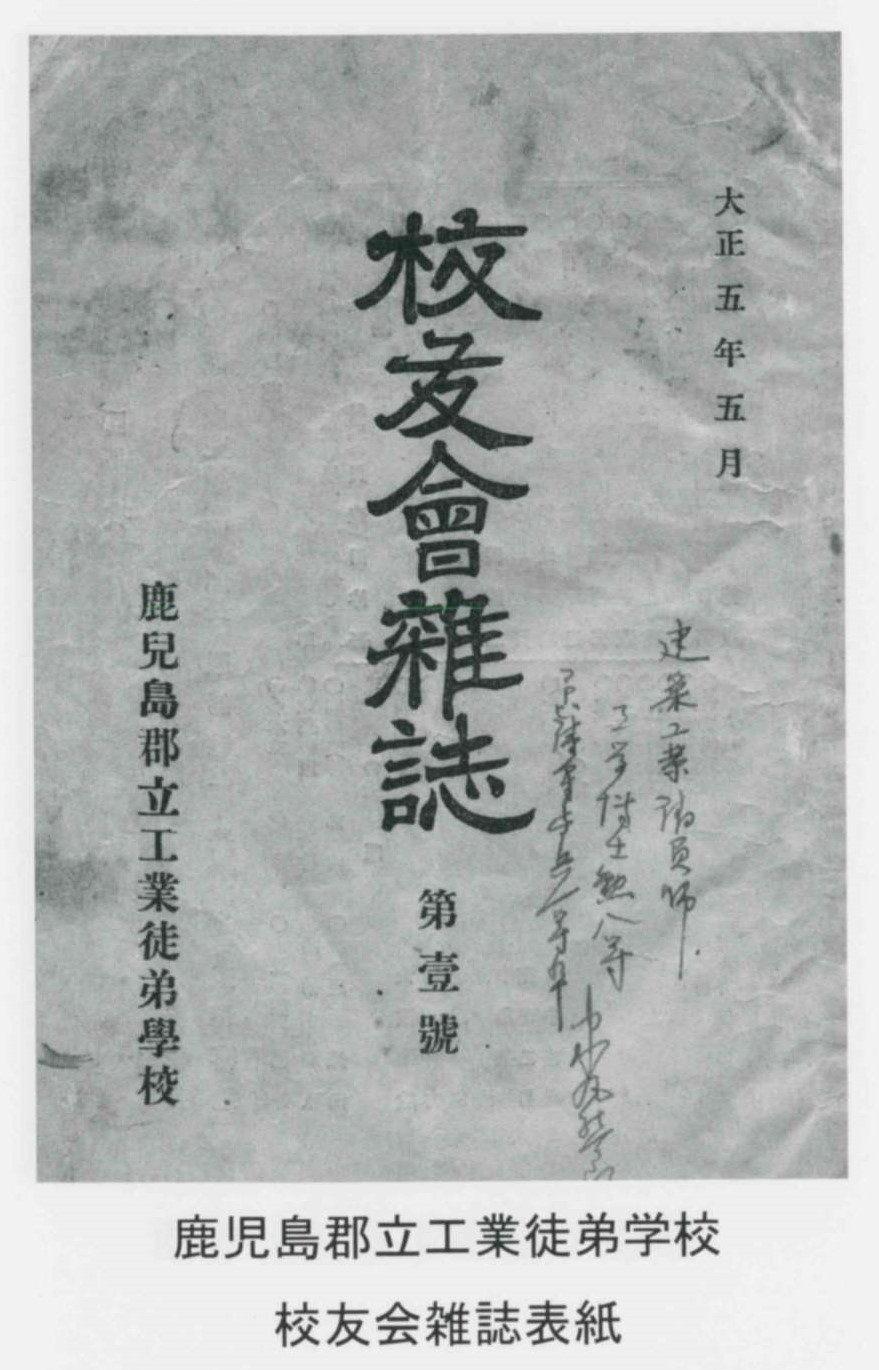 大正五年五月
校友會雜誌
第壹號
鹿兒島郡立工業徒弟學校
建築工業
工学博士勲八等
鹿児島郡立工業徒弟学校
校友会雑誌表紙